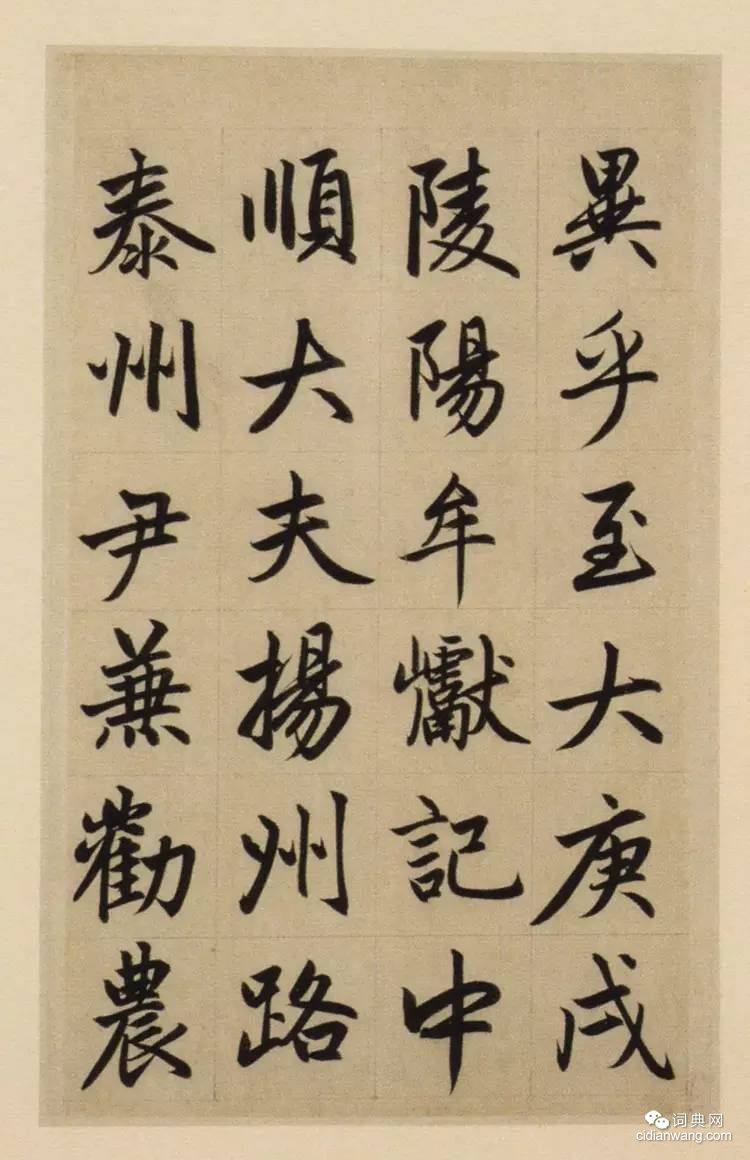 異乎至大庚戌
陵陽牟巘記中
順大夫揚州路
泰州尹蒹勸農
词典网
cidianwang.com